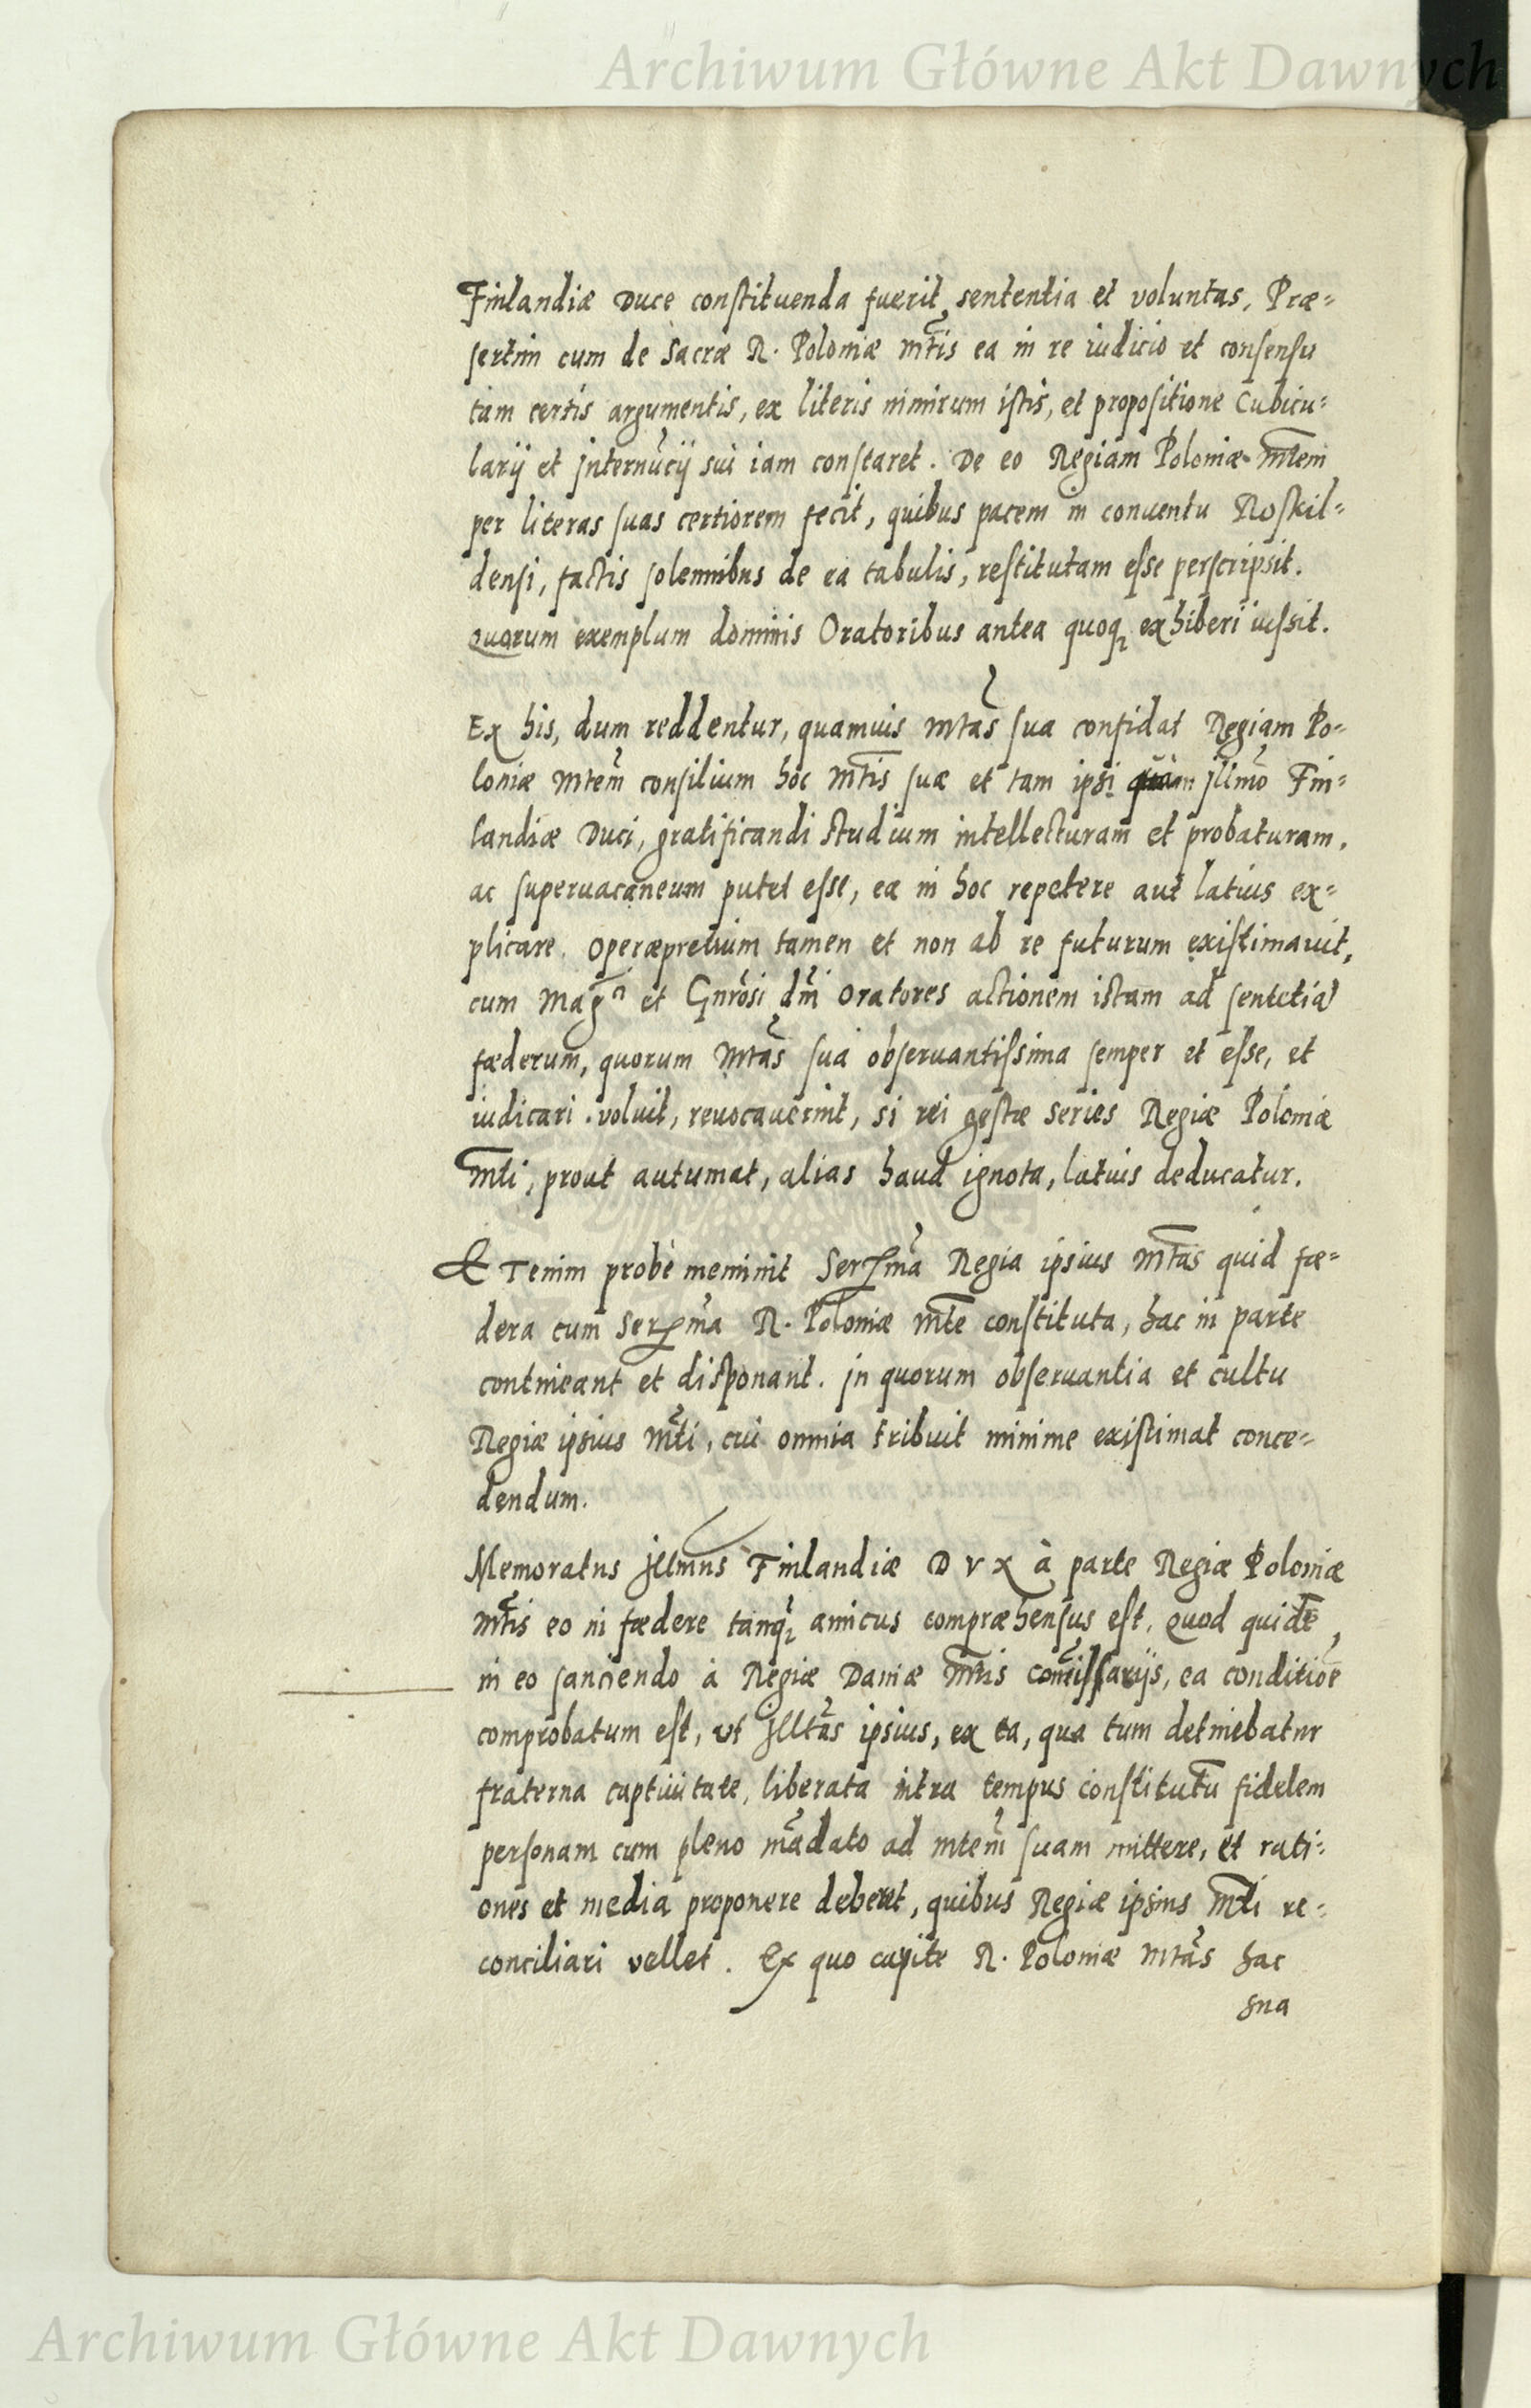 Archiwum Główne Akt Dawnych
Finlandiæ Duce constituenda fuerit, sententia et voluntas, Præ=
sertim cum de Sacræ R. Poloniæ Mtis ea in re iudicio et consensu
tam certis argumentis, ex literis nimirum istis, et propositione Cubicu=
larij et internucij sui iam constaret. De eo Regiam Poloniæ Mtem
per literas suas certiorem fecit, quibus pacem in conuentu Roskil=
densi, factis solemnibus de ea tabulis, restitutam esse perscripsit.
quorum exemplum dominis Oratoribus antea quoq; exhiberi iussit.
Ex his, dum reddentur, quamuis Mtas sua confidat Regiam Po=
loniæ Mtem consilium hoc Mtis suæ et tam ipsi quàm Jllmo Fin=
landiæ Duci, gratificandi studium intellecturam et probaturam,
ac superuacaneum putet esse, ea in hoc repetere aut latius ex=
plicare. Operæpretium tamen et non ab re futurum existimauit,
cum Mag.ci et Gnrosi dni Oratores actionem istam ad sentetiã
fæderum, quorum Mtas sua obseruantissima semper et esse, et
iudicari voluit, reuocauerint, si rei gestæ series Regiæ Poloniæ
Mti, prout autumat, alias haud ignota, latius deducatur.
Etenim probè meminit Serma Regia ipsius Mtas quid fæ=
dera cum Serma R. Poloniæ Mte constituta, hac in parte
contineant et disponant. in quorum obseruantia et cultu
Regiæ ipsius Mti, cui omnia tribuit minime existimat conce=
dendum.
Memoratus Jllmus Finlandiæ DVX à parte Regiæ Poloniæ
Mtis eo in fædere tanq; amicus compræhensus est. Quod quidẽ,
in eo sanciendo à Regiæ Daniæ Mtis Comissarijs, ea conditioe
comprobatum est, vt Jlltas ipsius, ex ea, qua tum detinebatur
fraterna captiuitate, liberata intra tempus constitutũ fidelem
personam cum pleno mãdato ad Mtem suam mittere, et rati=
ones et media proponere deberet, quibus Regiæ ipsius Mti re=
conciliari vellet. Ex quo capite R. Poloniæ Mtas hac
sua
Archiwum Główne Akt Dawnych